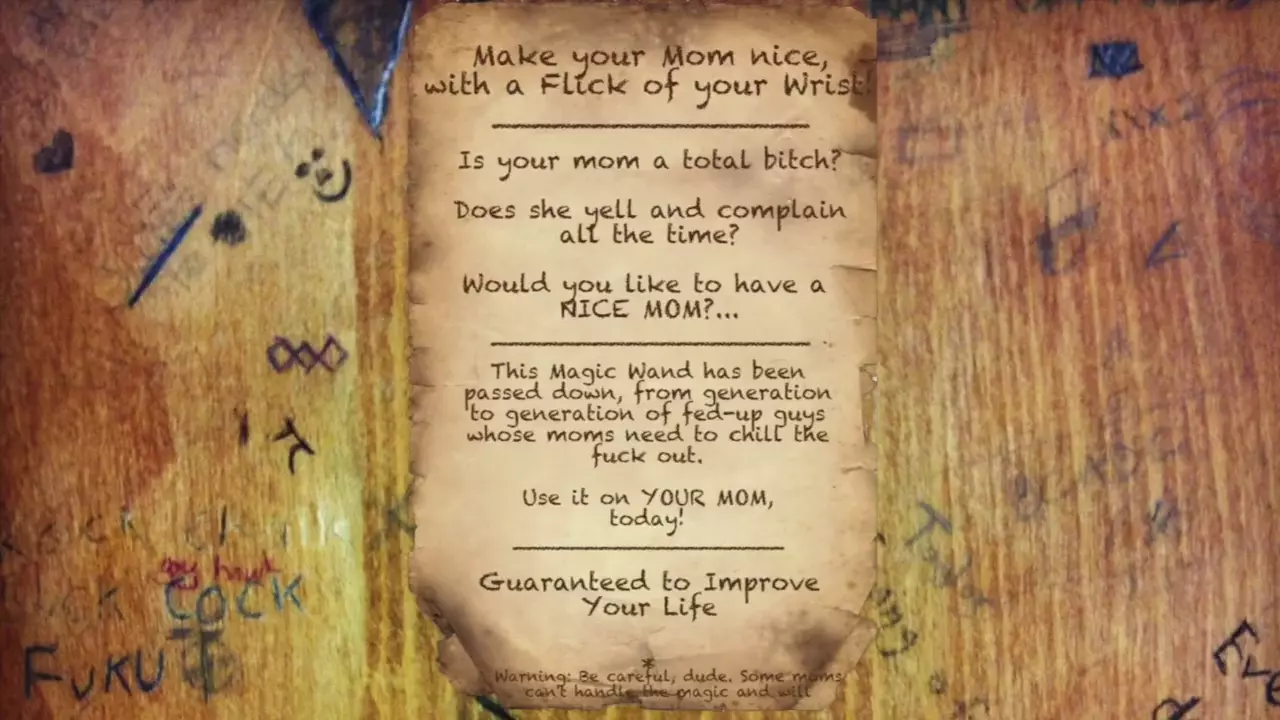 Make your Mom nice,
with a Flick of your Wrist!
Is your mom a total bitch?
Does she yell and complain
all the time?
Would you like to have a
NICE MOM?...
This Magic Wand has been
passed down, from generation
to generation of fed-up guys
whose moms need to chill the
fuck out.
Use it on YOUR MOM,
today!
Guaranteed to Improve
Your Life
*
Warning: Be careful, dude. Some moms
can't handle the magic and will
COCK
FUKU